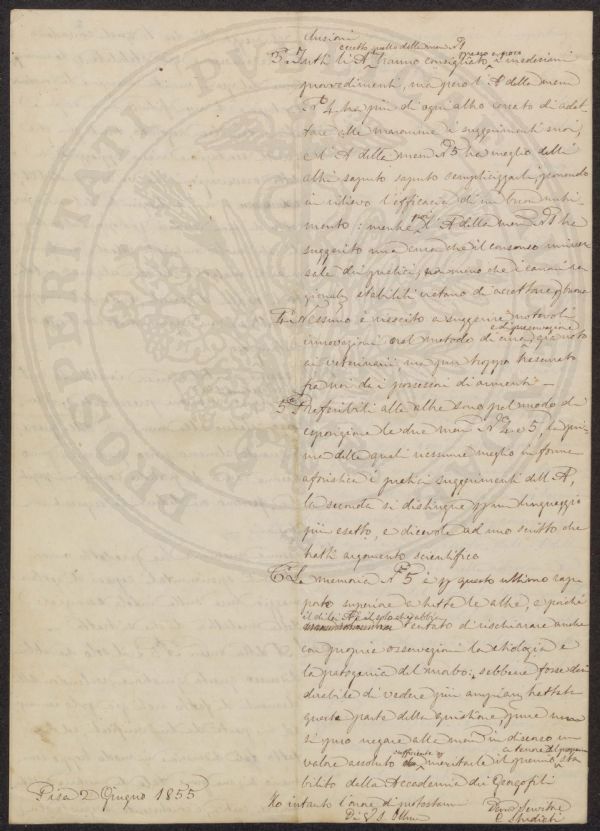 clusioni
eccetto quello della mem. Nº 1
3º Tutti li AA. hanno consigliato presso a poco i medesimi
provvedimenti, ma però l'A della mem
Nº 4 ha più di ogni altro cercato di adat
tare alle maremme i suggerimenti suoi,
e l'A della mem Nº 5 ha meglio delli
altri saputo saputo semplicizzarli, ponendo
in rilievo l'efficacia di un buon nutri
mento: mentre poi l'A della mem Nº 1 ha
suggerito una cura che il consenso univer
sale dei pratici, non meno che i canoni ra
zionali stabiliti vietano di accettare buona
4º Nessuno è riescito a suggerire notevoli
innovazioni nel metodo di cura e di preservazione già noto
ai veterinarii ma pur troppo trascurato
fra noi da i possessori di armenti —
5º Preferibili alle altre sono pel modo di
esposizione le due mem. Nº 4 e 5, la pri
ma delle quali riassume meglio in forma
aforistica i pratici suggerimenti dell'A,
la seconda si distingue per un linguaggio
più esatto, e dicevole ad uno scritto che
tratti argomento scientifico
6º La memoria Nº 5 è per questo ultimo rap
porto superiore a tutte le altre, e perchè
il di lei A è il solo che abbia tentato di rischiarare anche
con proprie osservazioni la etiologia e
la patogenia del morbo: sebbene forse desi
derabile di vedere più ampiam. trattata
questa parte della quistione, pure non
si può negare alla mem in discorso un
valore assoluto sufficiente per meritarle il premio a tenore del programma sta
bilito della Accademia dei Georgofili
Pisa 2 Giugno 1855
Ho intanto l'onore di protestarmi
Di V. S. Illma
Devmo Servitore
C. Studiati
PROSPERITATI PUBLICAE